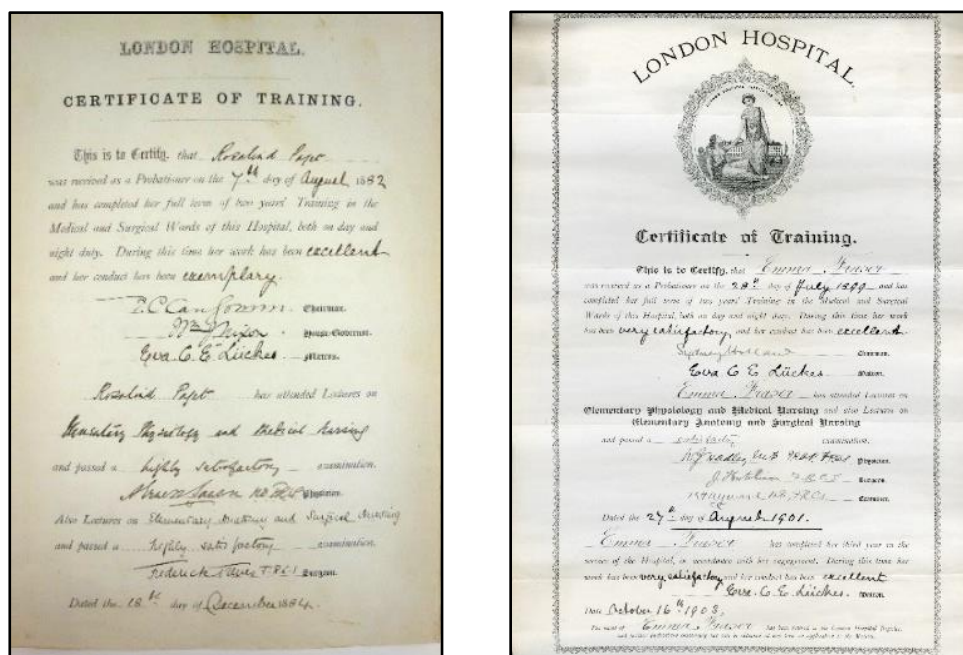 LONDON HOSPITAL.
CERTIFICATE OF TRAINING.
This is to Certify, that Rosalind Paget
was received as a Probationer on the 7th day of August 1882
and has completed her full term of two years' Training in the
Medical and Surgical Wards of this Hospital, both on day and
night duty. During this time her work has been excellent
and her conduct has been exemplary.
Chairman.
Wm J Nixon House-Governor.
Eva C. E. Lückes Matron.
Rosalind Paget has attended Lectures on
Elementary Physiology and Medical Nursing
and passed a highly satisfactory examination.
Physician.
Also Lectures on Elementary Anatomy and Surgical Nursing
and passed a highly satisfactory examination.
Frederick Treves F.R.C.S Surgeon.
Dated the 18th day of December 1884.
LONDON HOSPITAL.
Certificate of Training.
This is to Certify, that Emma Fraser
was received as a Probationer on the 28th day of July 1899 and has
completed her full term of two years' Training in the Medical and Surgical
Wards of this Hospital, both on day and night duty. During this time her work
has been very satisfactory and her conduct has been excellent
Sydney Holland Chairman.
Eva C E Lückes Matron.
Emma Fraser has attended Lectures on
Elementary Physiology and Medical Nursing and also Lectures on
Elementary Anatomy and Surgical Nursing
and passed a satisfactory examination.
Physician.
F.R.C.S Surgeon.
Examiner.
Dated the 27th day of August 1901.
Emma Fraser has completed her third year in the
service of the Hospital, in accordance with her engagement. During this time her
work has been very satisfactory and her conduct has been excellent
Eva C. E. Lückes. Matron.
Date October 16th 1903.
The name of Emma Fraser has been entered in the London Hospital Register,